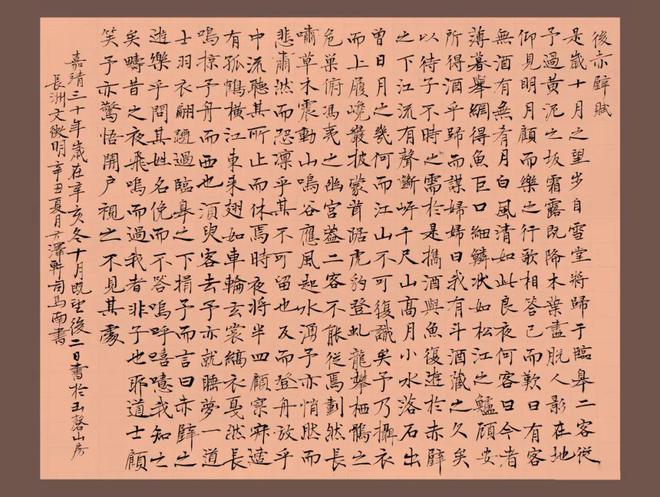 後赤壁賦
是歲十月之望步自雪堂將歸于臨皋二客從
予過黃泥之坂霜露既降木葉盡脫人影在地
仰見明月顧而樂之行歌相答已而歎曰有客
無酒有無肴月白風清如此良夜何客曰今者
薄暮舉網得魚巨口細鱗狀如松江之鱸顧安
所得酒乎歸而謀婦婦曰我有斗酒藏之久矣
以待子不時之需於是攜酒與魚復遊於赤壁
之下江流有聲斷岸千尺山高月小水落石出
曾日月之幾何而江山不可復識矣予乃攝衣
而上履巉巖披蒙茸踞虎豹登虬龍攀栖鶻之
危巢俯馮夷之幽宮蓋二客不能從焉劃然長
嘯草木震動山鳴谷應風起水湧予亦悄然而
悲肅然而恐凜乎其不可留也反而登舟放乎
中流聽其所止而休焉時夜將半四顧寂寥適
有孤鶴橫江東來翅如車輪玄裳縞衣戛然長
鳴掠予舟而西也須臾客去予亦就睡夢一道
士羽衣翩躚過臨皋之下揖予而言曰赤壁之
遊樂乎問其姓名俛而不答嗚呼嘻噫我知之
矣疇昔之夜飛鳴而過我者非子也耶道士顧
笑予亦驚悟開戶視之不見其處
嘉靖三十年歲在辛亥冬十月既望後二日書於玉磬山房
長洲文徵明辛丑夏月澤軒司馬南書